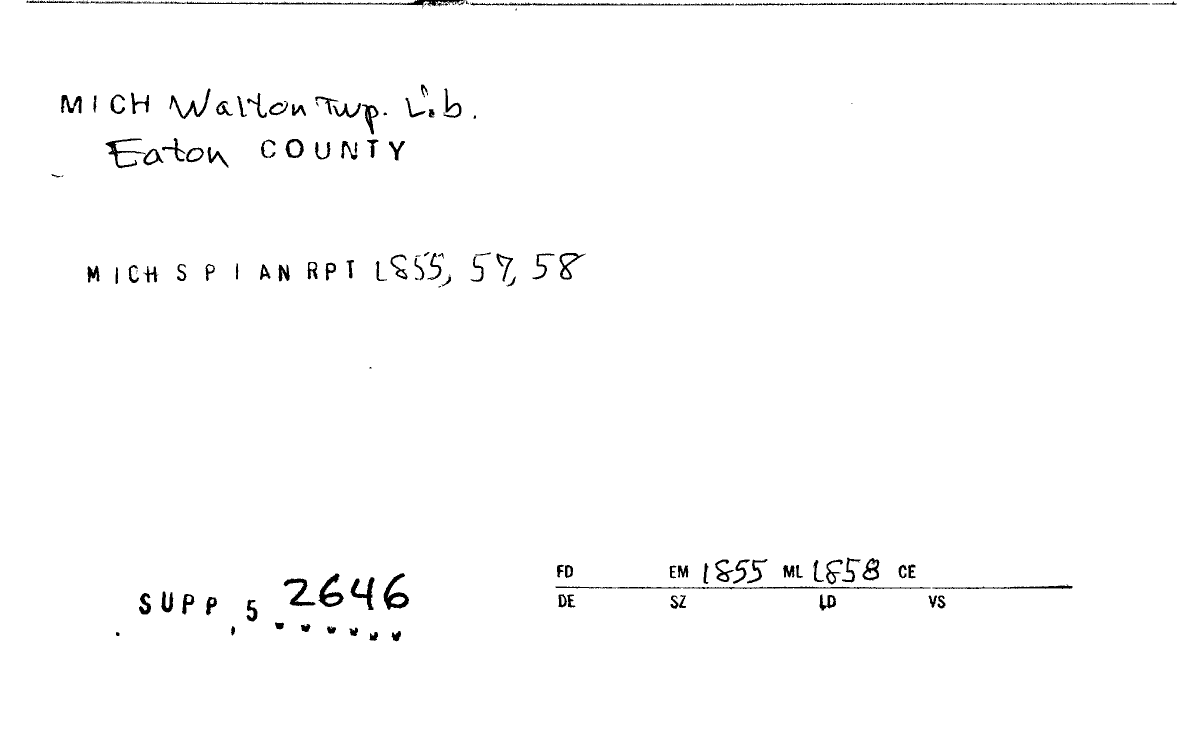 MICH Walton Twp. Lib.
Eaton COUNTY
MICH S P I AN RPT 1855, 57, 58
SUPP 5 2646
FD EM 1855 ML 1858 CE
DE SZ LD VS